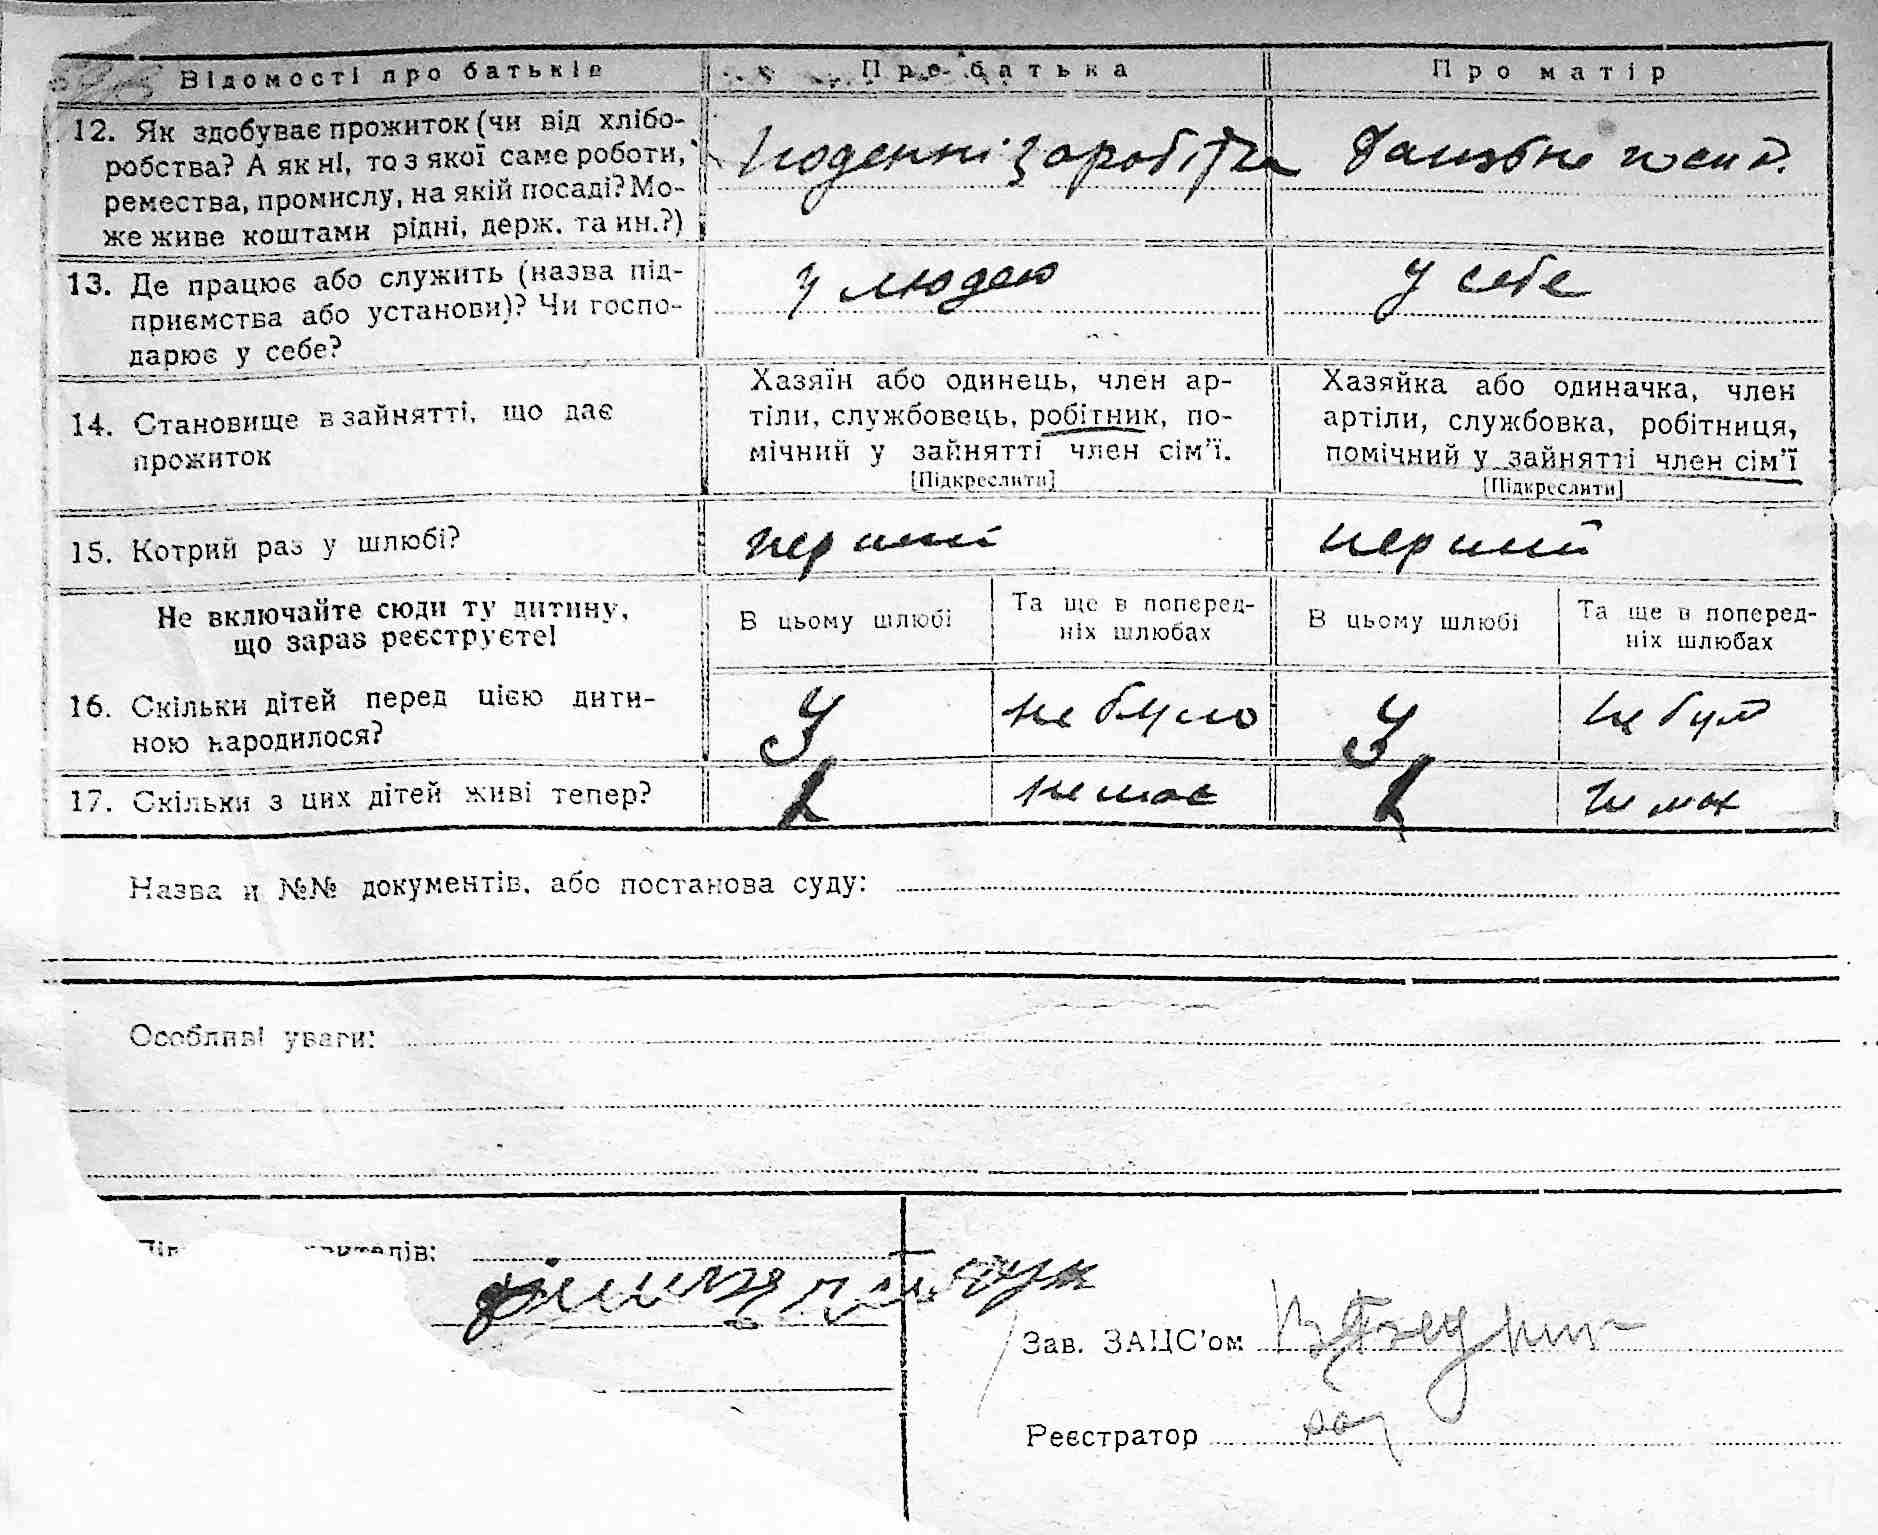 Відомості про батьків
Про батька
Про матір
12. Як здобуває прожиток (чи від хлібо-
робства? А як ні, то з якої саме роботи,
ремества, промислу, на якій посаді? Мо-
же живе коштами рідні, держ. та ин.?)
поденні заробітки
13. Де працює або служить (назва під-
приємства або установи)? Чи госпо-
дарює у себе?
у людей
у себе
14. Становище в зайнятті, що дає
прожиток
Хазяїн або одинець, член ар-
тіли, службовець, робітник, по-
мічний у зайнятті член сім'ї.
[Підкреслити]
Хазяйка або одиначка, член
артіли, службовка, робітниця,
помічний у зайнятті член сім'ї
[Підкреслити]
15. Котрий раз у шлюбі?
перший
перший
Не включайте сюди ту дитину,
що зараз реєструєте!
В цьому шлюбі
Та ще в поперед-
ніх шлюбах
В цьому шлюбі
Та ще в поперед-
ніх шлюбах
16. Скільки дітей перед цією дити-
ною народилося?
3
не було
3
не було
17. Скільки з цих дітей живі тепер?
немає
немає
Назва и №№ документів, або постанова суду:
Особливі уваги:
Зав. ЗАЦС'ом
Реєстратор